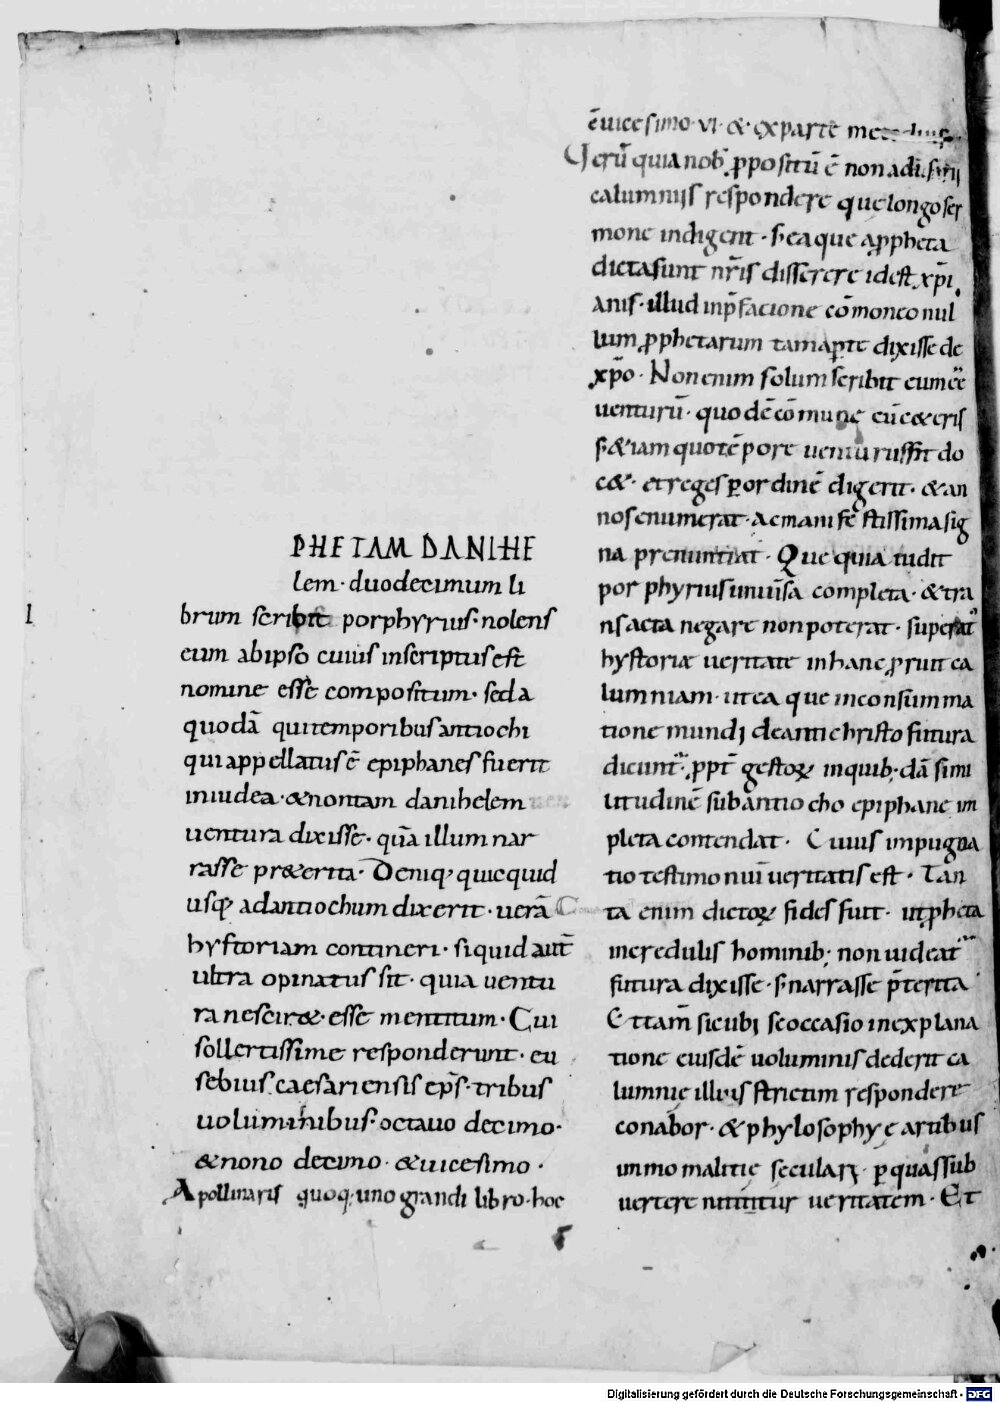 PHETAM DANIHE
lem· duodecimum li
brum scribit porphyrius· nolens
eum ab ipso cuius inscriptus est
nomine esse compositum· sed a
quodā qui temporibus antiochi
qui appellatus ē epiphanes fuerit
in iudea· & non tam danihelem
uentura dixisse· quā illum nar
rasse pr&erita· Deniq; quicquid
usq; ad antiochum dixerit· uerā
hystoriam contineri· si quid aut̄
ultra opinatus sit· quia uentu
ra nescir&· esse mentitum· Cui
sollertissime responderunt· eu
sebius caesariensis ep̄s· tribus
uoluminibus· octauo decimo·
& nono decimo· & uicesimo·
Apollinaris quoq; uno grandi libro· hoc
ē uicesimo· VI· & ex parte
Uerū quia nob̄ ꝓpositū ē non
calumnijs respondere que longo ser
mone indigent· s; ea que a ꝓpheta
dicta sunt nr̄is disserere id est xp̄i
anis· illud in p̄facione cōmoneo nul
lum ꝓphetarum tam aꝑte dixisse de
xp̄o· Non enim solum scribit eum ēē
uenturū· quod ē cōmune cū c&eris
s; &iam quo tēpore uenturus sit do
c&· et reges ꝑ ordinē digerit· & an
nos enumerat· ac manifestissima sig
na prenuntiat· Que quia uidit
porphyrius uniuīsa completa· & tra
nsacta negare non poterat· superat'
hystoriæ ueritate in hanc ꝓruit ca
lumniam· ut ea que in consumma
tione mundi de antichristo futura
dicunt'· ꝓpt̄ gestoꝝ in quib; dā simi
litudinē sub antiocho epiphane im
pleta contendat· Cuius impugna
tio testimoniū ueritatis est· Tan
ta enim dictoꝝ fides fuit· ut ꝓpheta
incredulis hominib; non uideat'
futura dixisse· s; narrasse p̄terita
Et tam̄ sicubi se occasio in explana
tione eiusdē uoluminis dederit ca
lumnie illius strictim respondere
conabor· & phylosophyę artibus
immo malitię seculari· ꝑ quas sub
uertere nititur ueritatem· Et
Digitalisierung gefördert durch die Deutsche Forschungsgemeinschaft· DFG